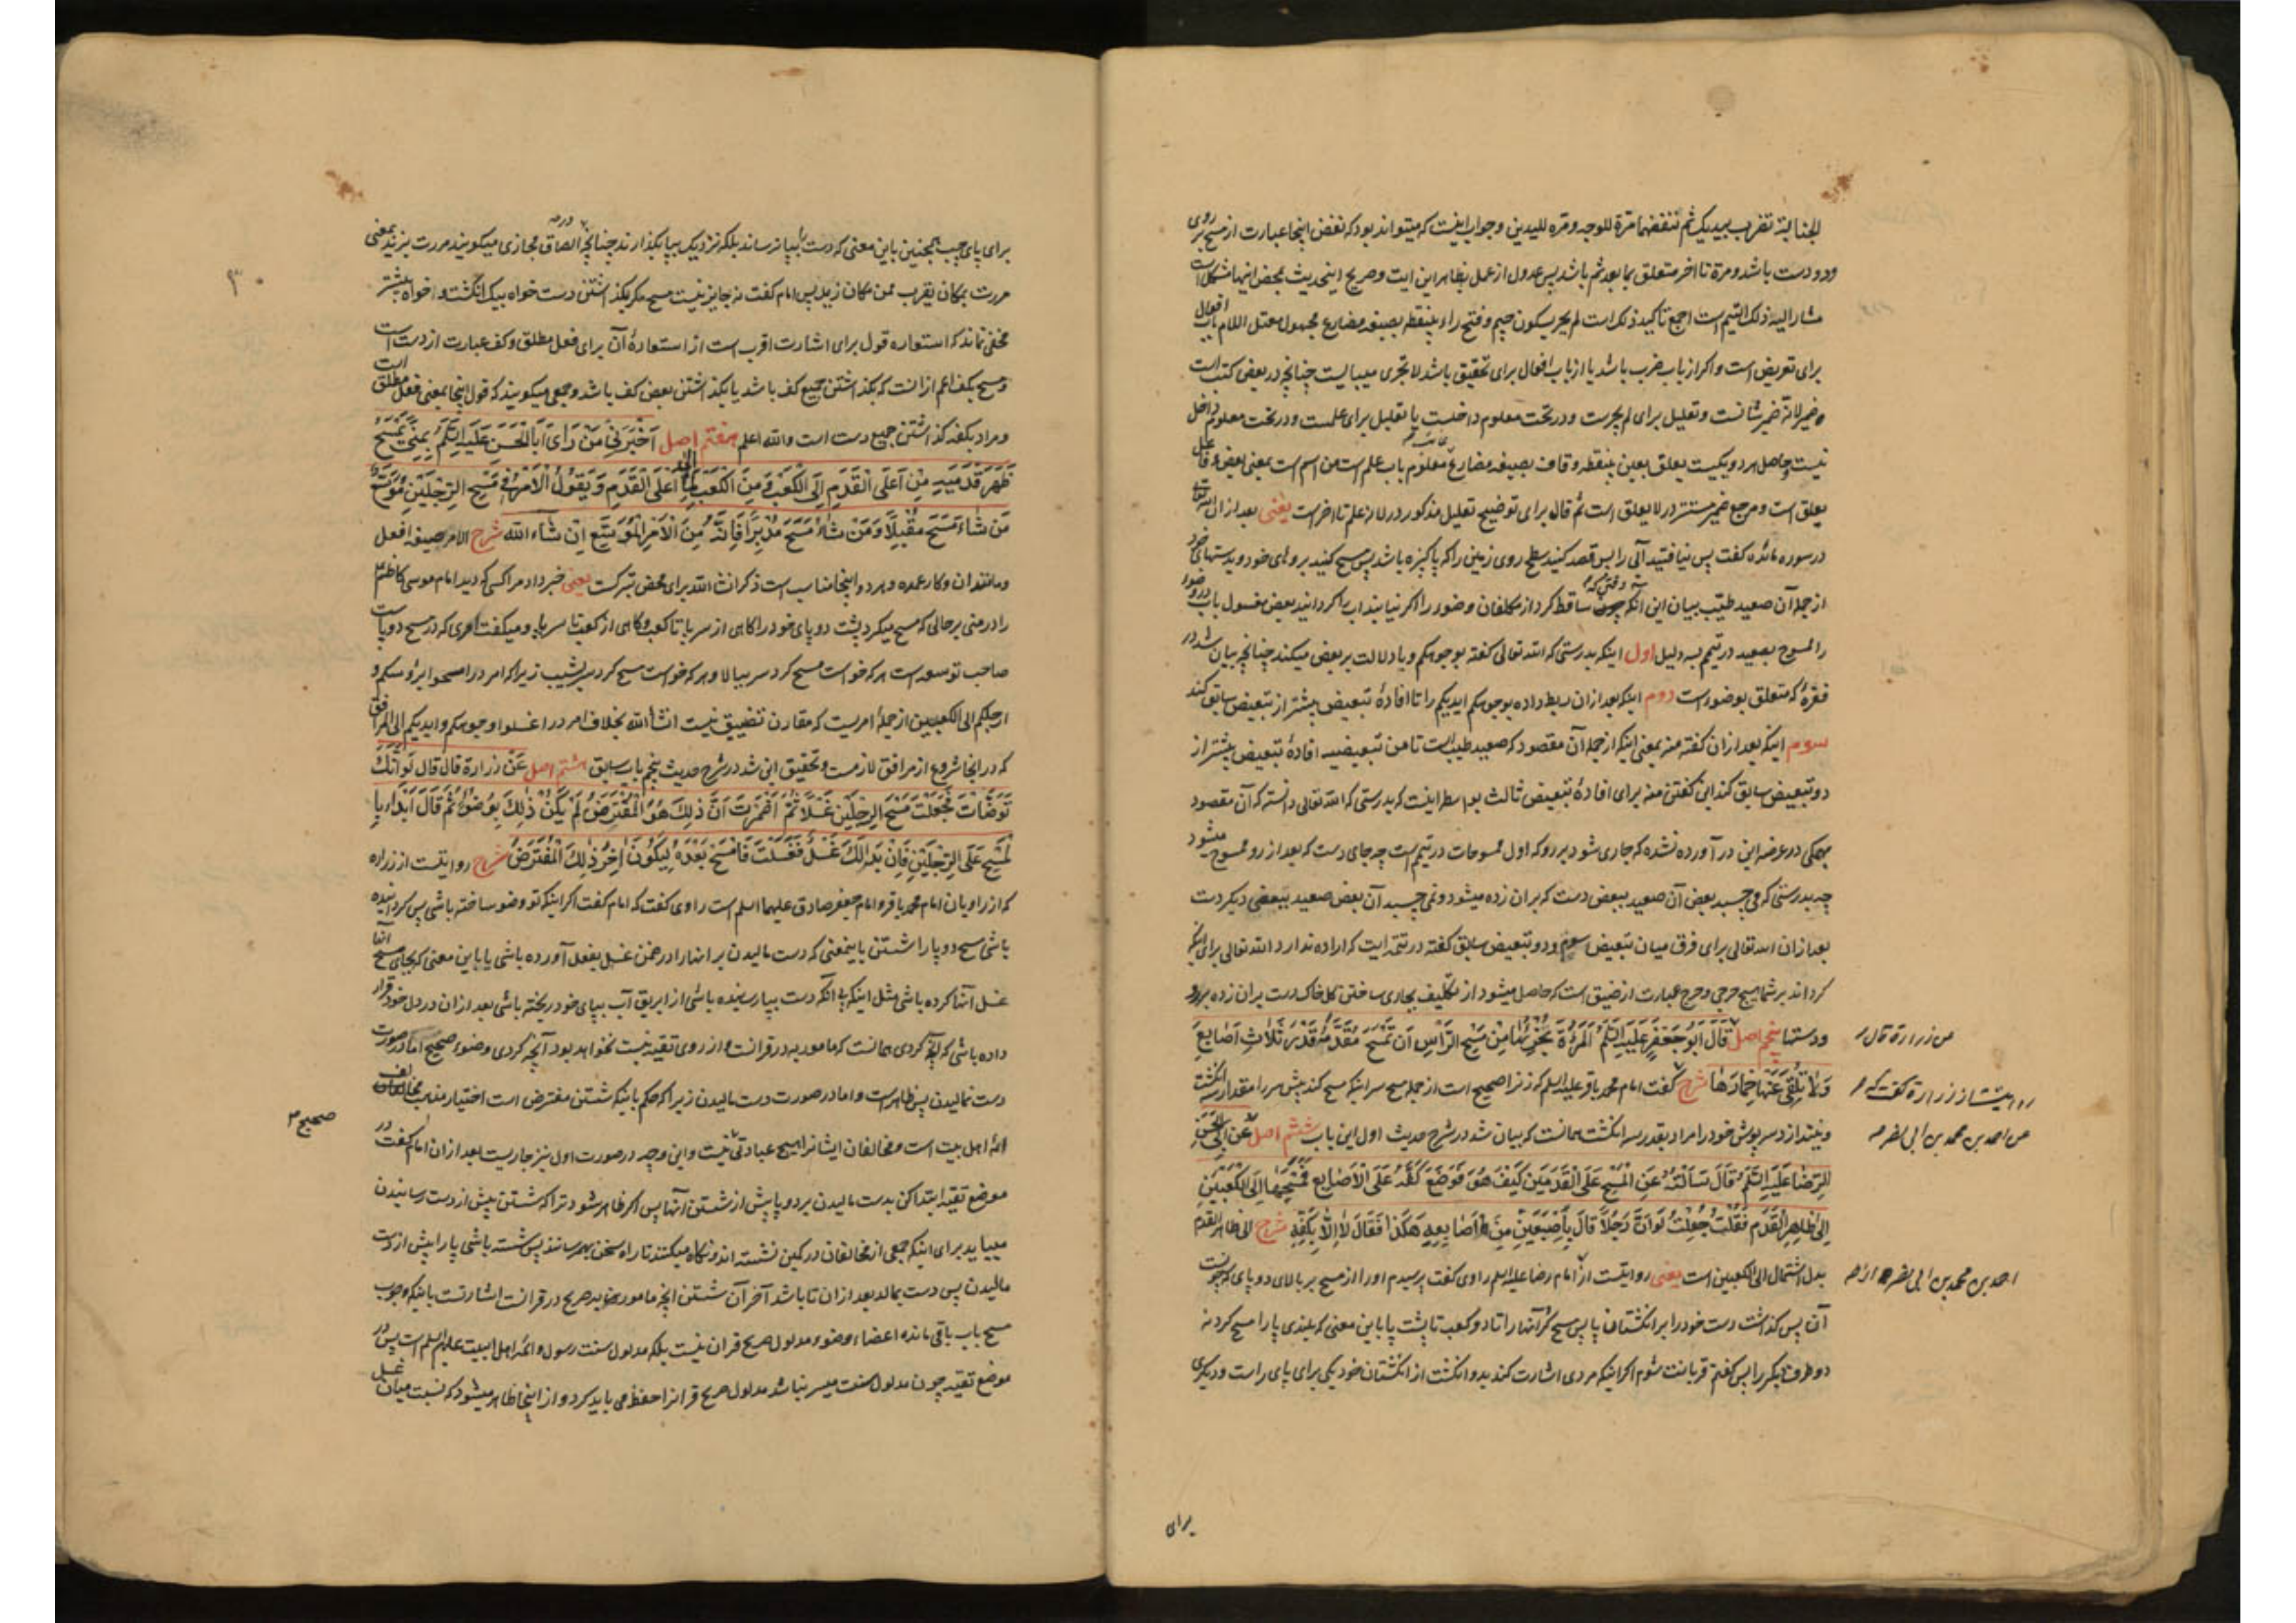 الجنابة تضرب بیدیک ثم تنفضهما مرّة للوجه و مرّه للیدین و جواب اینست که میتواند بود که نفض اینجا عبارت از مسح بر روی
و دو دست باشد و مرة تا اخر متعلق بما بعد ثم باشد پس عدول از عمل بظاهر این ایت و صریح اینحدیث بمحض اینها مشکل است
مشار الیه ذلک التیمم است اجمع تاکید ذلک است لم یجر بسکون جیم و فتح راء بینقطه بصیغه مضارع مجهول معتل اللام باب افعال
برای تعریض است و اکر از باب ضرب باشد یا از باب افعال برای تحقیق باشد لا تجری میبایست چنانچه در بعض کتب است
و ضمیر لانّه ضمیر شانست و تعلیل برای لم یجرست و در تحت معلوم داخلست یا تعلیل برای علمست و در تحت معلوم داخل
نیست و حاصل هر دو یکیست یعلق بعین بینقطه و قاف بصیغه مضارع معلوم باب علم است من اسم است بمعنی بعض و فاعل
یعلق است و مرجع ضمیر مستتر در لا یعلق است ثم قال برای توضیح تعلیل مذکور در لانه علم تا اخرست یعنی بعد از ان الله تعالی
در سوره مائده کفت پس نیافتید آبی را پس قصد کنید سطح روی زمین را که پاکیزه باشد پس مسح کنید بروهای خود و بدستهای خود
از جمله آن صعید طیّب بیان این انکه وقتی که ساقط کرد از مکلفان وضو را اکر نیابند اب را کردانید بعض مغسول باب در وضو
را ممسوح بصعید در تیمم بسه دلیل اول اینکه بدرستی که الله تعالی کفته بوجوهکم و با دلالت بر بعض میکند چنانچه بیان شد در
فقرهٔ که متعلق بوضو است دوم اینکه بعد از ان ربط داده بوجوهکم ایدیکم را تا افادهٔ تبعیض بیشتر از تبعیض سابق کند
سوم اینکه بعد از ان کفته منه بمعنی اینکه از جمله آن مقصود که صعید طیب است تا من تبعیضیه افادهٔ تبعیض بیشتر از
دو تبعیض سابق کند این کفتن منه برای افادهٔ تبعیض ثالث بواسطه اینست که بدرستی که الله تعالی دانسته که آن مقصود
بهمکی در عرضه این در آورده نشده که جاری شود بر رو که اول ممسوحات در تیمم است چه جای دست که بعد از رو ممسوح میشود
چه بدرستی که می چسبد بعض آن صعید ببعض دست که بر ان زده میشود و نمی چسبد آن بعض صعید ببعض دیکر دست
بعد از ان الله تعالی برای فرق میان تبعیض سوم و دو تبعیض سابق کفته در تتمه ایت که اراده ندارد الله تعالی برای اینکه
کرداند بر شما هیچ حرجی و حرج عبارت از ضیق است که حاصل میشود از تکلیف بجاری ساختن کل خاک دست بران زده بر رو
و دستها پنجم اصل قَالَ اَبُو جَعْفَرٍ عَلَیْهِ السَّلَمُ الْمَرْءَةُ یُجْزِئُهَا مِنْ مَسْحِ الرَّاْسِ اَنْ تَمْسَحَ مُقَدَّمَهُ قَدْرَ ثَلَاثِ اَصَابِعَ
عن زرارة قال
وَ لَا تُلْقِیَ عَنْهَا خِمَارَهَا شرح کفت امام محمد باقر علیه السلم که زن را صحیح است از جمله مسح سر اینکه مسح کند پیش سر را مقدار سه انکشت
روایتست از زرارة کفت که
و نیندازد سرپوش خود را مراد بقدر سه انکشت همانست که بیان شد در شرح حدیث اول این باب ششم اصل عَنْ اَبِی الْحَسَنِ
عن احمد بن محمد بن ابی نصر
الرِّضَا عَلَیْهِ السَّلَمُ قَالَ سَاَلْتُهُ عَنِ الْمَسْحِ عَلَی الْقَدَمَیْنِ کَیْفَ هُوَ فَوَضَعَ کَفَّهُ عَلَی الْاَصَابِعِ فَمَسَحَهَا اِلَی الْکَعْبَیْنِ
اِلَی ظَاهِرِ الْقَدَمِ فَقُلْتُ جُعِلْتُ لَوْ اَنَّ رَجُلًا قَالَ بِاِصْبَعَیْنِ مِنْ اَصَابِعِهِ هَکَذَا فَقَالَ لَا اِلَّا بِکَفِّهِ شرح الی ظاهر القدم
بدل اشتمال الی الکعبین است یعنی روایتست از امام رضا علیه السلم راوی کفت پرسیدم او را از مسح بر بالای دو پای که چونست
احمد بن محمد بن ابی نصر از
آن پس کذاشت دست خود را بر انکشتان پا پس مسح کرد آنها را تا دو کعب تا پشت پا باین معنی که بلندی پا را مسح کرد نه
دو طرف دیکر را پس کفتم قربانت شوم اکر اینکه مردی اشارت کند بدو انکشت از انکشتان خود یکی برای پای راست و دیکری
برای
۳۰
برای پای چپ همچنین باین معنی که دست را بپا نرساند بلکه نزدیک بپا بکذارند چنانچه در الصاق مجازی میکویند مررت بزید بمعنی
مررت بمکان یقرب من مکان زید پس امام کفت نه جایز نیست مسح مکر بکذاشتن دست خواه بیک انکشت و خواه بیشتر
مخفی نماند که استعاره قول برای اشارت اقرب است از استعارهٔ آن برای فعل مطلق و کف عبارت از دست است
و مسح بکف اعم از انست که بکذاشتن جمیع کف باشد یا بکذاشتن بعض کف باشد و جمعی میکویند که قول اینجا بمعنی فعل مطلق است
و مراد بکفه کذاشتن جمیع دست است والله اعلم هفتم اصل اَخْبَرَنِی مَنْ رَاَی اَبَا الْحَسَنِ عَلَیْهِ السَّلَمُ بِمِنًی یَمْسَحُ
ظَهْرَ قَدَمَیْهِ مِنْ اَعْلَی الْقَدَمِ اِلَی الْکَعْبِ وَ مِنَ الْکَعْبِ اِلَی اَعْلَی الْقَدَمِ وَ یَقُولُ الْاَمْرُ فِی مَسْحِ الرِّجْلَیْنِ مُوَسَّعٌ
مَنْ شَاءَ مَسَحَ مُقْبِلًا وَ مَنْ شَاءَ مَسَحَ مُدْبِرًا فَاِنَّهُ مِنَ الْاَمْرِ الْمُوَسَّعِ اِنْ شَاءَ الله شرح الامر صیغه افعل
و مانند ان و کار عمده و هر دو اینجا مناسب است ذکر انشاءالله برای محض تبرکست یعنی خبر داد مرا کسی که دید امام موسی کاظم
را در منی بر حالی که مسح میکرد پشت دو پای خود را کاهی از سر پا تا کعب و کاهی از کعب تا سر پا و میکفت امری که در مسح دو پا است
صاحب توسعه است هر که خواست مسح کرد سر ببالا و هر که خواست مسح کرد سر بشیب زیرا که امر در امسحوا برؤسکم و
ارجلکم الی الکعبین از جملهٔ امریست که مقارن تضییق نیست انشاالله بخلاف امر در اغسلوا وجوهکم و ایدیکم الی المرافق
که در انجا شروع از مرافق لازمست و تحقیق این شد در شرح حدیث پنجم باب سابق هشتم اصل عَنْ زُرَارَةَ قَالَ قَالَ لَوْ اَنَّکَ
تَوَضَّاْتَ فَجَعَلْتَ مَسْحَ الرِّجْلَیْنِ غَسْلًا ثُمَّ اَضْمَرْتَ اَنَّ ذَلِکَ هُوَ الْمُفْتَرَضُ لَمْ یَکُنْ ذَلِکَ بِوُضُوْءٍ ثُمَّ قَالَ اِبْدَاْ بِا
لْمَسْحِ عَلَی الرِّجْلَیْنِ فَاِنْ بَدَا لَکَ غَسْلٌ فَغَسَلْتَ فَامْسَحْ بَعْدَهُ لِیَکُونَ اٰخِرُ ذَلِکَ الْمُفْتَرَضَ شرح روایتست از زراره
که از راویان امام محمد باقر و امام جعفر صادق علیهما السلم است راوی کفت که امام کفت اکر اینکه تو وضو ساخته باشی پس کردانیده
باشی مسح دو پا را شستن باینمعنی که دست مالیدن بر انها را در ضمن غسل بفعل آورده باشی یا باین معنی که بجای مسح انها
غسل آنها کرده باشی مثل اینکه بی انکه دست بپا رسانیده باشی از ابریق آب بپای خود ریخته باشی بعد از ان در دل خود قرار
داده باشی که آنچه کردی همانست که مامور به در قرانست و از روی تقیه نیست نخواهد بود آنچه کردی وضوء صحیح اما در صورت
دست نمالیدن پس ظاهر است و اما در صورت دست مالیدن زیرا که حکم باینکه شستن مفترض است اختیار مذهب مخالف
صحیح
ائمه اهل بیت است و مخالفان ایشانرا هیچ عبادتی نیست و این وجه در صورت اول نیز جاریست بعد از ان امام کفت در
موضع تقیه ابتدا کن بدست مالیدن بر دو پا پیش از شستن آنها پس اکر ظاهر شود ترا که شستن پیش از دست رسانیدن
میباید برای اینکه جمعی از مخالفان در کمین نشسته اند و نکاه میکنند تا راه سخن بهم رسانند پس شسته باشی پا را پیش از دست
مالیدن پس دست بمال بعد از ان تا باشد آخر آن شستن انچه مامور به صریح در قرانست اشارتست باینکه وجوب
مسح باب باقی مانده اعضاء وضوء مدلول صریح قران نیست بلکه مدلول سنت رسول و ائمه اهل البیت علیهم السلم است پس در
موضع تقیه چون مدلول سنت میسر نباشد مدلول صریح قرانرا حفظ می باید کرد و از اینجا ظاهر میشود که نسبت میان غسل